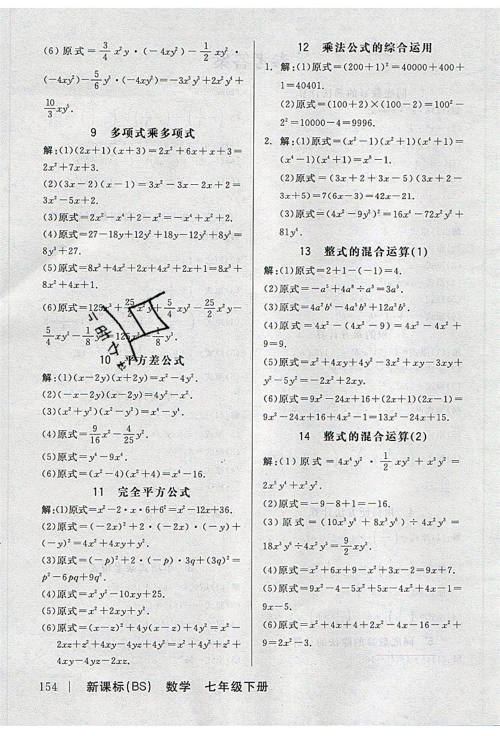 (6)原式=3/4 x²y·(-4xy²)-1/2 xy²·
(-4xy²)-5/6 y³·(-4xy²)=-3x³y³+2x²y⁴+
10/3 xy⁵.
9 多项式乘多项式
解:(1)(2x+1)(x+3)=2x²+6x+x+3=
2x²+7x+3.
(2)(3x-2)(x-1)=3x²-3x-2x+2=
3x²-5x+2.
(3)原式=2x²-x⁴+2-x²=-x⁴+x²+2.
(4)原式=27-18y+12y²+18y-12y²+8y³=
8y³+27.
(5)原式=8x³+4x²+2x+4x²+2x+1=8x³+
8x²+4x+1.
10 平方差公式
解:(1)(x-2y)(x+2y)=x²-4y².
(2)(-x-2y)(x-2y)=4y²-x².
(3)(x²+y²)(x²-y²)=x⁴-y⁴.
(4)原式=9/16 x²-4/25 y².
(5)原式=y⁴-9x⁴.
(6)原式=(x²-4)(x²+4)=x⁴-16.
11 完全平方公式
解:(1)原式=x²-2·x·6+6²=x²-12x+36.
(2)原式=(-2x)²+2·(-2x)·(-y)+
(-y)²=4x²+4xy+y².
(3)原式=(-p)²+2·(-p)·3q+(3q)²=
p²-6pq+9q².
(4)原式=x²y²-10xy+25.
(5)原式=x²+2xy+y².
(6)原式=(x-z)²+4y(x-z)+4y²=x²-
2xz+z²+4xy-4yz+4y²=x²+4y²+z²+
4xy-4yz-2xz.
12 乘法公式的综合运用
1. 解:(1)原式=(200+1)²=40000+400+
1=40401.
(2)原式=(100+2)×(100-2)=100²-
2²=10000-4=9996.
2. 解:(1)原式=(x²-1)(x²+1)(x⁴+1)=
(x⁴-1)(x⁴+1)=x⁸-1.
(2)原式=(3x+2+3x-5)(3x+2-
3x+5)=7(6x-3)=42x-21.
(3)原式=(4x²-9y²)²=16x⁴-72x²y²+
81y⁴.
13 整式的混合运算(1)
解:(1)原式=2+1-(-1)=4.
(3)原式=4a²b⁴-4a³b³+12a²b³.
(4)原式=4x²-(4x²-9)=4x²-4x²+
9=9.
(5)原式=x²+4xy+4y²-3x²+xy-3xy+
y²-5y²=-2x²+2xy.
(6)原式=9x²-24x+16+(2x+1)(2x-1)=
9x²-24x+16+4x²-1=13x²-24x+15.
14 整式的混合运算(2)
(2)原式=-9-8+1=-16.
(4)原式=x²+6x+9-x²+3x-2=9x+7.
(5)原式=9x²-4-5x²+5x-4x²+4x-1=
9x-5.
(6)原式=x²+4x+4+2x²-4x-16-x²+
9=2x²-3.
154 | 新课标(BS) 数学 七年级下册